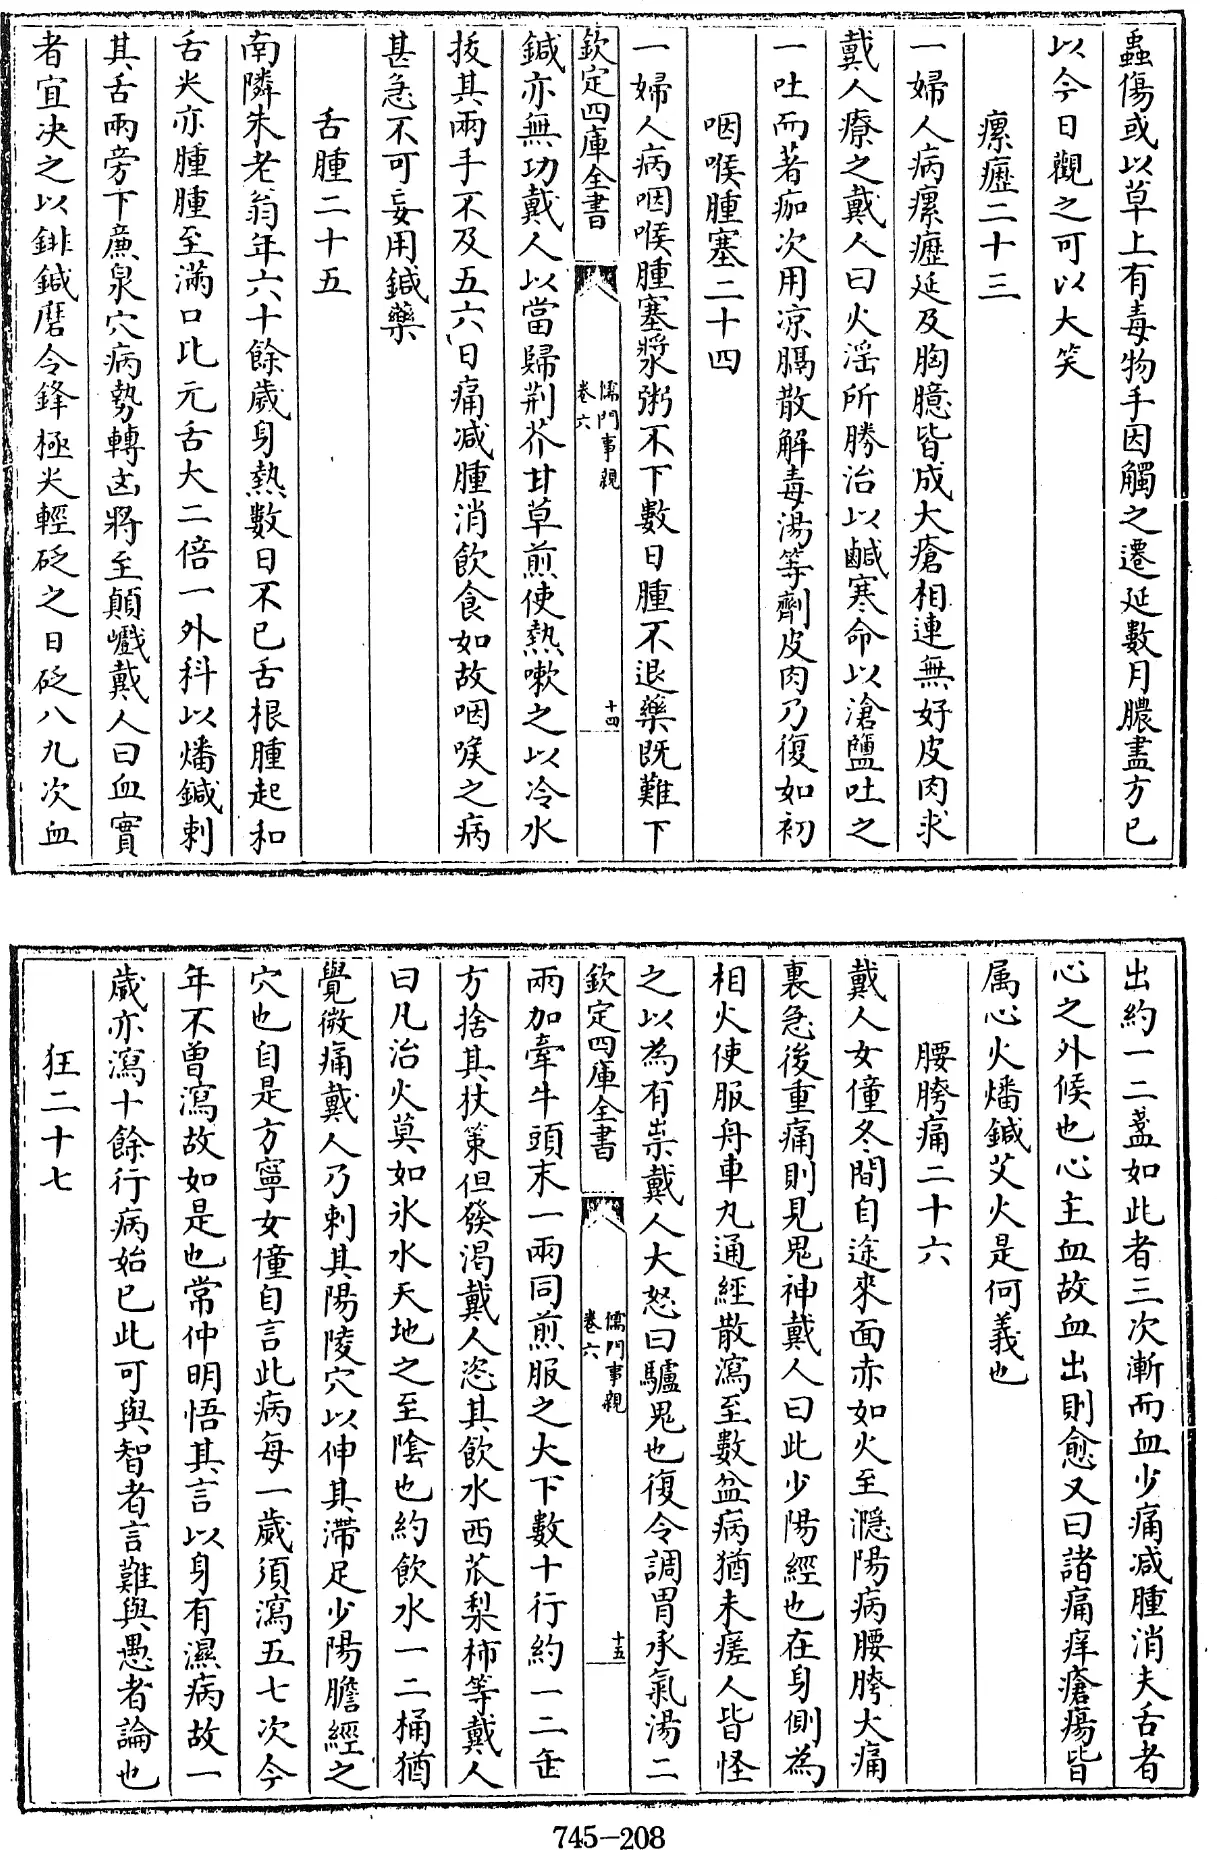 蟲傷或以草上有毒物手因觸之遷延數月膿盡方已
以今日觀之可以大笑
瘰癧二十三
一婦人病瘰癧延及胸臆皆成大瘡相連無好皮肉求
戴人療之戴人曰火淫所勝治以鹹寒命以滄鹽吐之
一吐而著痂次用凉膈散解毒湯等劑皮肉乃復如初
咽喉腫塞二十四
一婦人病咽喉腫塞漿粥不下數日腫不退藥既難下
欽定四庫全書
儒門事親
卷六
十四
鍼亦無功戴人以當歸荆芥甘草煎使熱嗽之以冷水
拔其兩手不及五六日痛减腫消飲食如故咽喉之病
甚急不可妄用鍼藥
舌腫二十五
南隣朱老翁年六十餘歲身熱數日不已舌根腫起和
舌尖亦腫腫至滿口比元舌大二倍一外科以燔鍼刺
其舌兩旁下亷泉穴病勢轉凶將至顛巇戴人曰血實
者宜决之以銔鍼磨令鋒極尖輕砭之日砭八九次血
出約一二盞如此者三次漸而血少痛减腫消夫舌者
心之外候也心主血故血出則愈又曰諸痛痒瘡瘍皆
属心火燔鍼艾火是何義也
腰胯痛二十六
戴人女僮冬間自途來面赤如火至㶏陽病腰胯大痛
裏急後重痛則見鬼神戴人曰此少陽經也在身側為
相火使服舟車丸通經散瀉至數盆病猶未瘥人皆怪
之以為有祟戴人大怒曰驢鬼也復令調胃承氣湯二
欽定四庫全書
儒門事親
卷六
十五
兩加牽牛頭末一兩同煎服之大下數十行約一二缶
方捨其杖策但發渴戴人恣其飲水西苽梨柿等戴人
曰凡治火莫如氷水天地之至隂也約飲水一二桶猶
覺微痛戴人乃刺其陽陵穴以伸其滯足少陽膽經之
穴也自是方寧女僮自言此病每一歲須瀉五七次今
年不曽瀉故如是也常仲明悟其言以身有濕病故一
歲亦瀉十餘行病始已此可與智者言難與愚者論也
狂二十七
745-208